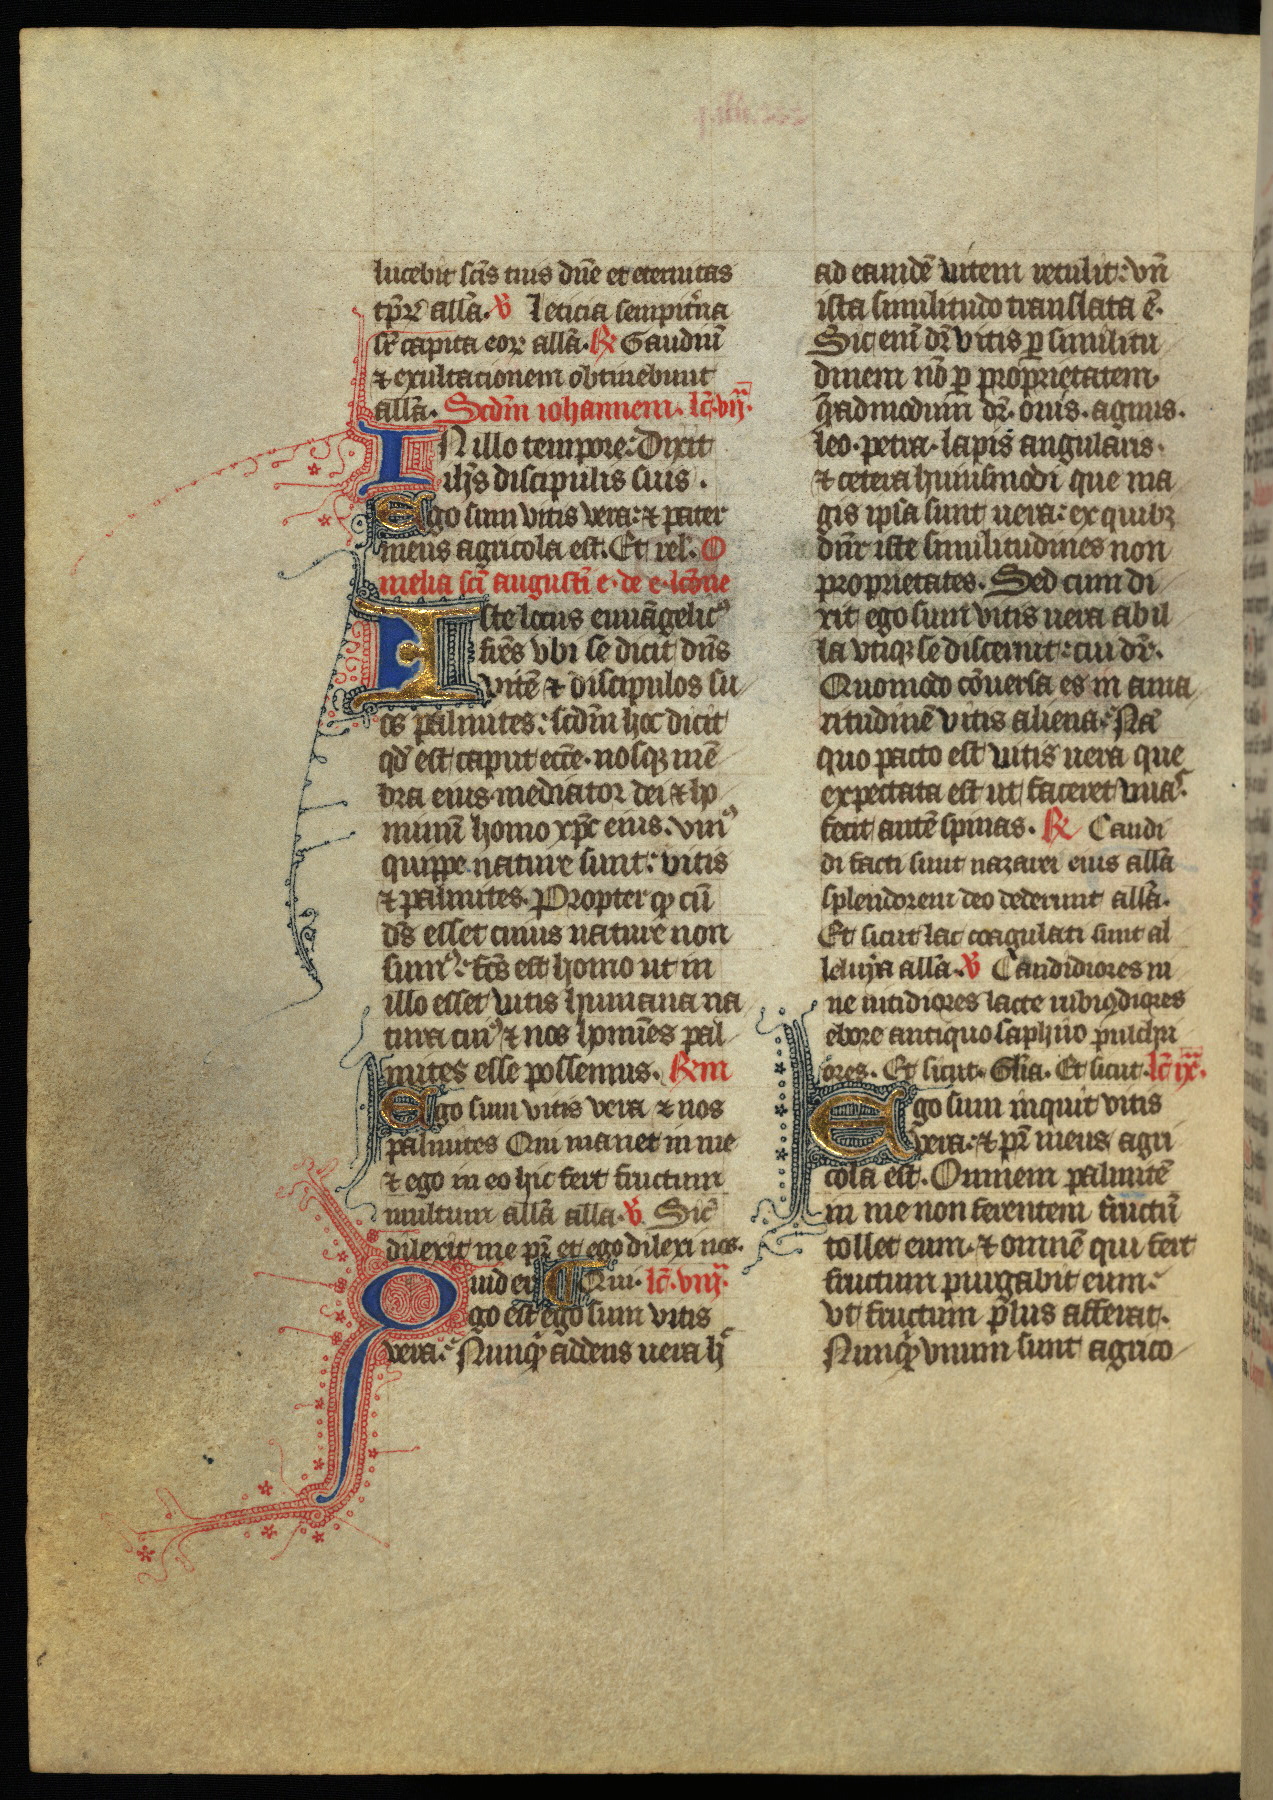 lucebit scīs tuis dn̄e et eternitas
tp̄rꝝ allā. ℣ Leticia sempit̾na
sr̄ capita eoꝝ allā. ℟ Gaudiū
⁊ exultacionem obtinebunt
allā. Scd̄m iohannem. lc̄. vij.
IN illo tempore: Dixit
ihs̄ discipulis suis.
Ego sum vitis vera: ⁊ pater
meus agricola est. Et rel. O
melia scī augustī e. de e. lcōne
Iste locus euuāgelicꝰ
fr̄es vbi se dicit dn̄s
vitē ⁊ discipulos su
os palmites: scd̄m hoc dicit
qd̄ est caput ecc̄e. nosqꝫ mē
bra eius mediator dei ⁊ ho
minū homo xp̄c eius. vniꝰ
quippe nature sunt: vitis
⁊ palmites. Propter qd̄ cū
ds̄ esset cuius nature non
sumꝰ: fc̄s est homo ut in
illo esset vitis humana na
tura cuiꝰ ⁊ nos homīes pal
mites esse possemus. ℟m
Ego sum vitis vera ⁊ nos
palmites Qui manet in me
⁊ ego in eo hic fert fructum
multum allā allā. ℣ Sic̄
dilexit me pr̄ et ego dilexi nos.
Quid er Qui. lc̄. viij.
go est ego sum vitis
vera: Nunqͥd addens uera h
ad eandē uitem retulit: vn̄
ista similitudo translata ē.
Sic enī dr̄ vitis p̱ similitu
dinem nō p̱ proprietatem.
q̄admodum dr̄. ouis. agnus.
leo. petra. lapis angularis.
⁊ cetera huiusmodi que ma
gis ipsa sunt uera: ex quibꝫ
dn̄r iste similitudines non
proprietates. Sed cum di
xit ego sum vitis uera ab il
la vtiqꝫ se discernit: cui dr̄.
Quomodo cōuersa es in ama
ritudinē vitis aliena: Nā
quo pacto est uitis uera que
expectata est ut faceret uuas
fecit autē spinas. ℟ Candi
di facti sunt nazarei eius allā
splendorem deo dederunt allā.
Et sicut lac coagulati sunt al
leluya allā. ℣ Candidiores ni
ue nitidiores lacte rubicūdiores
ebore antiquo saphiro pulchri
ores. Et sicut. Glīa. Et sicut. lc̄ ix.
Ego sum inquit vitis
vera: ⁊ pr̄ meus agri
cola est. Omnem palmitē
in me non ferentem fructū
tollet eum. ⁊ omnē qui fert
fructum purgabit eum:
vt fructum plus afferat.
Nunqͥd vnum sunt agrico